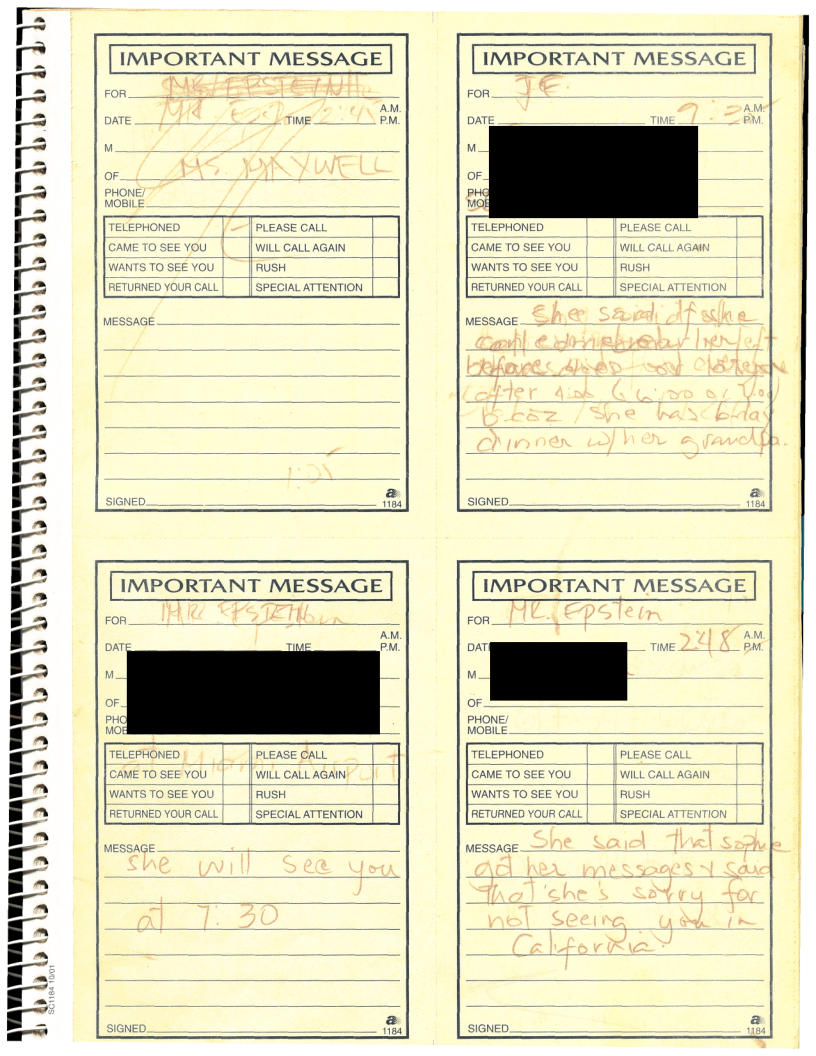 IMPORTANT MESSAGE
FOR MR. EPSTEIN
DATE MR. TIME 2:45 A.M. P.M.
M
OF MS. MAXWELL
PHONE/
MOBILE
TELEPHONED PLEASE CALL
CAME TO SEE YOU WILL CALL AGAIN
WANTS TO SEE YOU RUSH
RETURNED YOUR CALL SPECIAL ATTENTION
MESSAGE
1:25
SIGNED
a
1184
IMPORTANT MESSAGE
FOR J.E.
DATE TIME A.M. P.M.
M
OF
PHO
MOB
TELEPHONED PLEASE CALL
CAME TO SEE YOU WILL CALL AGAIN
WANTS TO SEE YOU RUSH
RETURNED YOUR CALL SPECIAL ATTENTION
MESSAGE She said if she
after 4:00 (6:00 or 7:00)
b-coz she has b-day
dinner w/her grandpa.
SIGNED
a
1184
IMPORTANT MESSAGE
FOR MR. EPSTEIN
DATE TIME A.M. P.M.
M
OF
PHO
MOB
TELEPHONED PLEASE CALL
at Miami Airport
CAME TO SEE YOU WILL CALL AGAIN
WANTS TO SEE YOU RUSH
RETURNED YOUR CALL SPECIAL ATTENTION
MESSAGE
she will see you
at 7:30
SIGNED
a
1184
IMPORTANT MESSAGE
FOR MR. Epstein
DATE TIME 2:48 A.M. P.M.
M
OF
PHONE/
MOBILE
TELEPHONED PLEASE CALL
CAME TO SEE YOU WILL CALL AGAIN
WANTS TO SEE YOU RUSH
RETURNED YOUR CALL SPECIAL ATTENTION
MESSAGE She said that sophie
got her messages & said
that she's sorry for
not seeing you in
California.
SIGNED
a
1184
SC1184 10/01